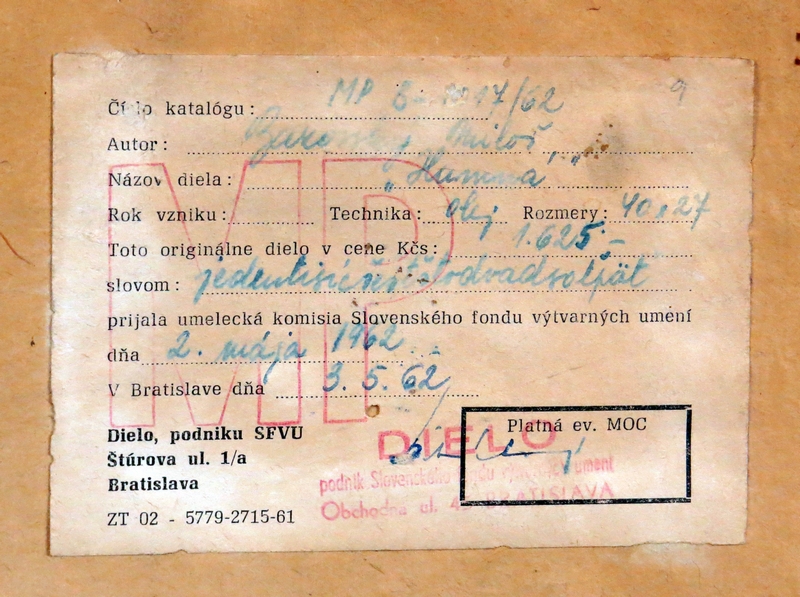 Číslo katalógu: MP 8- 1017/62 9
Autor: Miloš
Názov diela: „Humná"
Rok vzniku: Technika: olej Rozmery: 40x27
Toto originálne dielo v cene Kčs: 1.625,-
slovom: jedentisícšesťstodvadsaťpäť
prijala umelecká komisia Slovenského fondu výtvarných umení
dňa 2. mája 1962
V Bratislave dňa 3. 5. 62
MP
Platná ev. MOC
Dielo, podniku SFVU
Štúrova ul. 1/a
Bratislava
ZT 02 - 5779-2715-61
DIELO
podnik Slovenského fondu výtvarných umení
Obchodná ul. BRATISLAVA